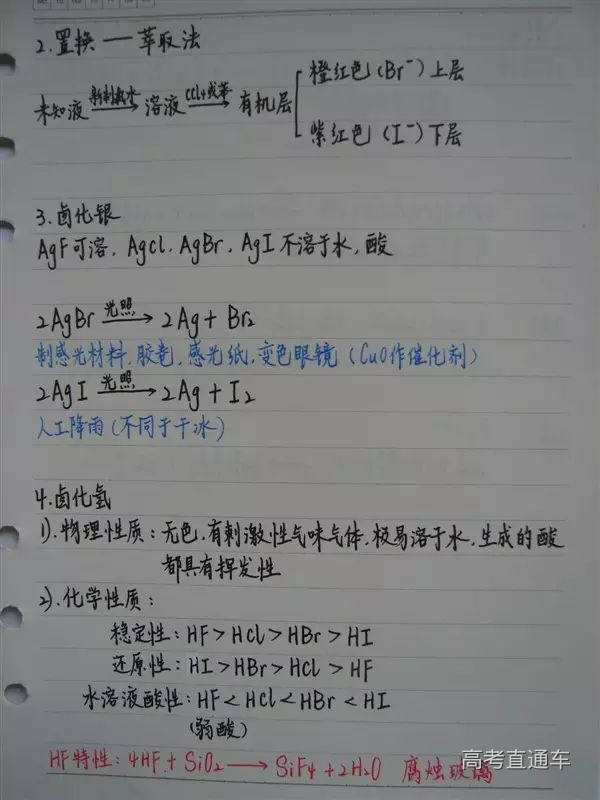 2.置换——萃取法
橙红色(Br⁻)上层
未知液 新制氯水→ 溶液 CCl₄或苯→ 有机层
紫红色(I⁻)下层
3.卤化银
AgF可溶,AgCl,AgBr,AgI不溶于水,酸
2AgBr 光照→ 2Ag+Br₂
制感光材料,胶卷,感光纸,变色眼镜(CuO作催化剂)
2AgI 光照→ 2Ag+I₂
人工降雨(不同于干冰)
4.卤化氢
1).物理性质:无色,有刺激性气味气体,极易溶于水,生成的酸
都具有挥发性
2).化学性质:
稳定性:HF>HCl>HBr>HI
还原性:HI>HBr>HCl>HF
水溶液酸性:HF<HCl<HBr<HI
(弱酸)
HF特性:4HF+SiO₂→SiF₄+2H₂O 腐蚀玻璃
高考直通车